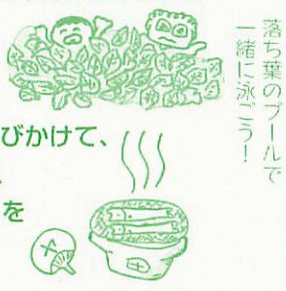 落ち葉のプールで
一緒に泳ごう！
びかけて、
を